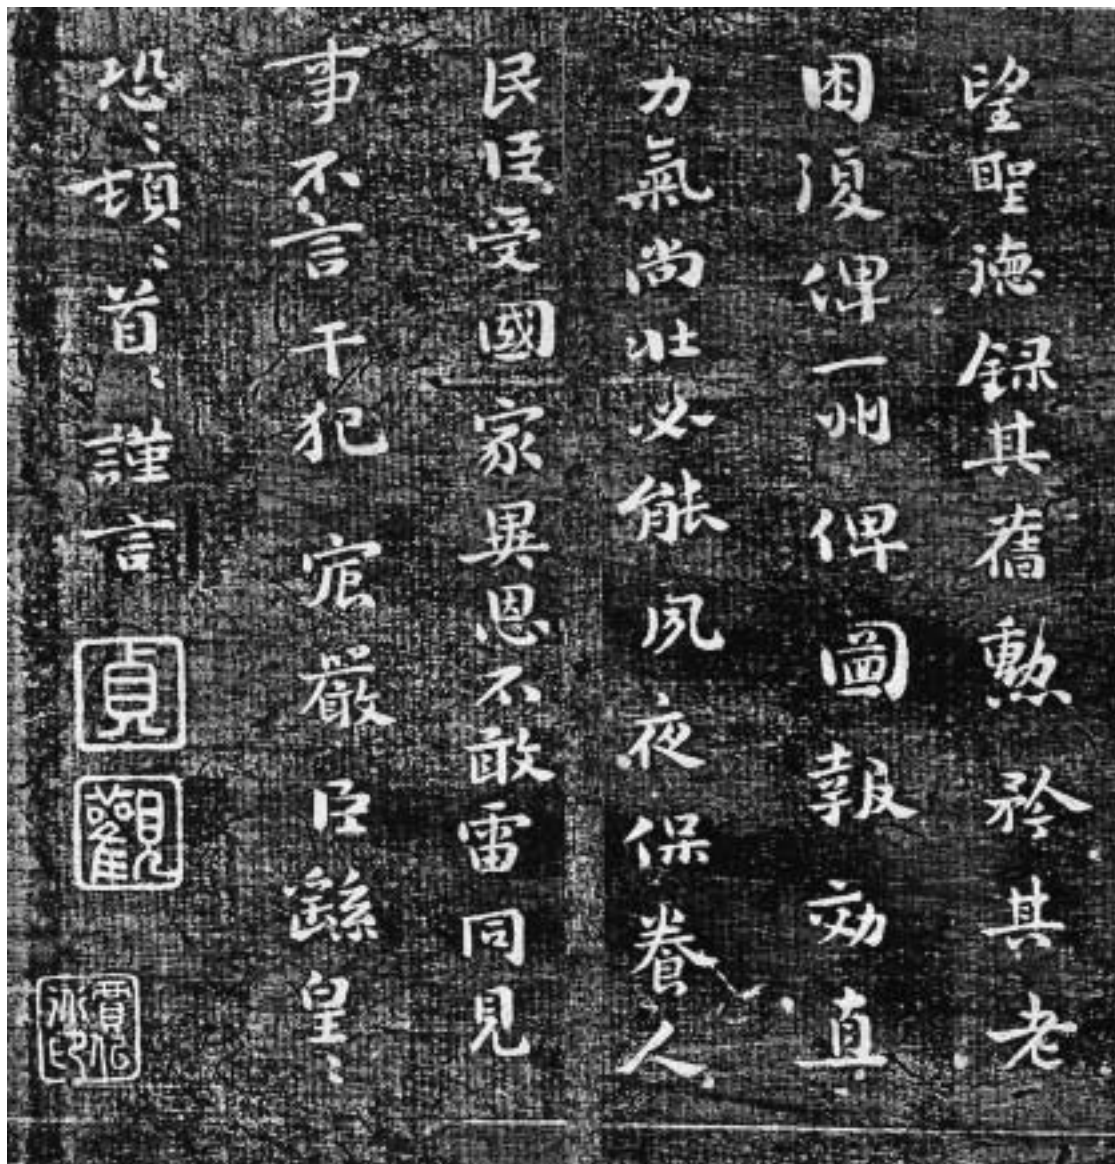 望聖德録其舊勳矜其老
困復俾一州俾圖報効直
力氣尚壯必能夙夜保養人
民臣受國家異恩不敢雷同見
事不言干犯宸嚴臣繇皇〻
恐〻頓〻首〻謹言
貞
觀